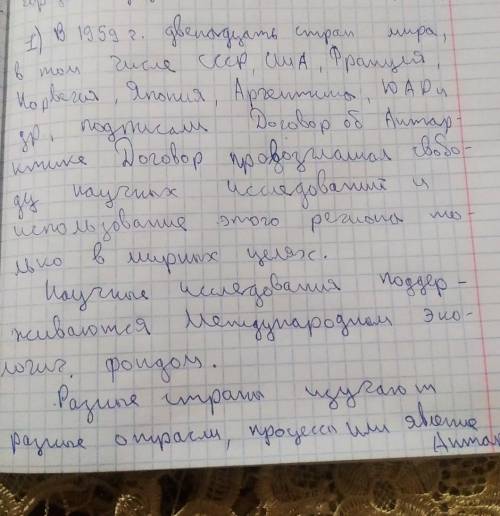 1) В 1959 г. двенадцать стран мира,
в том числе СССР, США, Франция,
Норвегия, Япония, Аргентина, ЮАР и
др, подписали Договор об Антар-
ктике Договор провозглашал свобо-
ду научных исследований и
использование этого региона то-
лько в мирных целях.
Научные исследования поддер-
живаются Международном эко-
логич. фондом.
Разные страны изучают
разные отрасли, процессы или явление
Антар